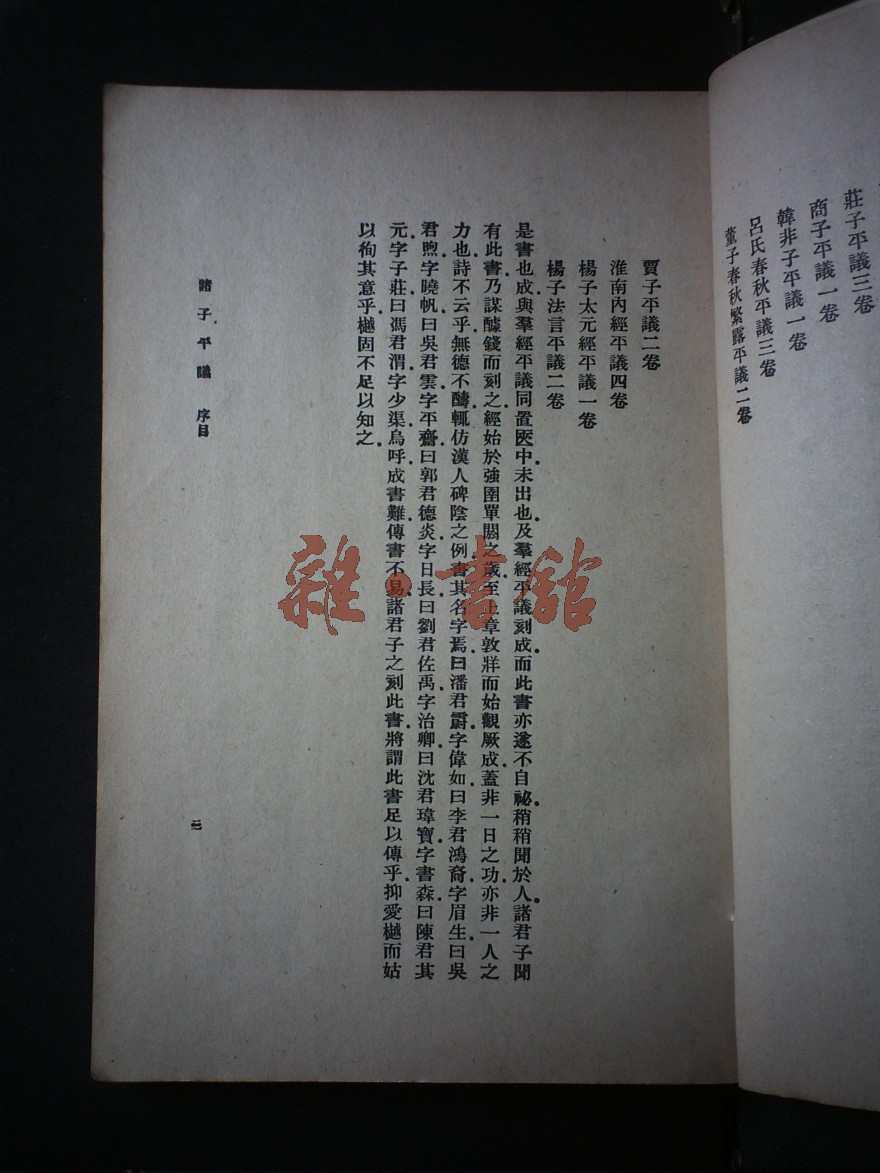 莊子平議三卷
商子平議一卷
韓非子平議一卷
呂氏春秋平議三卷
董子春秋繁露平議二卷
賈子平議二卷
淮南內經平議四卷
楊子太元經平議一卷
楊子法言平議二卷
是書也成與羣經平議同置医中未出也及羣經平議刻成而此書亦遂不自祕稍稍聞於人諸君子聞
有此書乃謀醵錢而刻之經始於強圉單閼之歲至上章敦牂而始觀厥成蓋非一日之功亦非一人之
力也詩不云乎無德不醻輒仿漢人碑陰之例書其名字焉曰潘君霨字偉如曰李君鴻裔字眉生曰吳
君煦字曉帆曰吳君雲字平齋曰郭君德炎字日長曰劉君佐禹字治卿曰沈君瑋寶字書森曰陳君其
元字子莊曰馮君渭字少渠烏呼成書難傳書不易諸君子之刻此書將謂此書足以傳乎抑愛樾而姑
以徇其意乎樾固不足以知之
諸子平議 序目
三
雜·書館